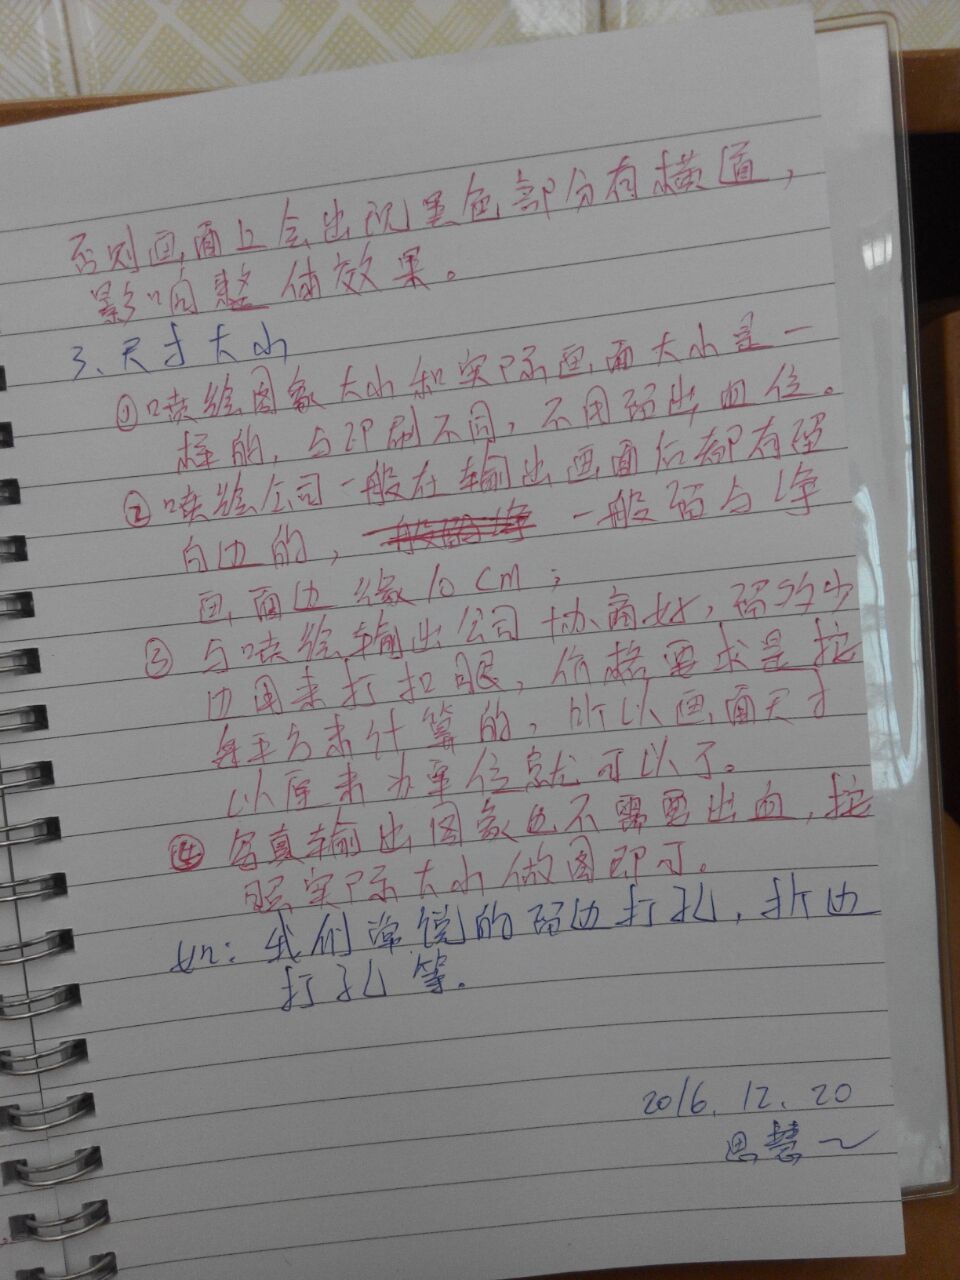 否则画面上会出现黑色部分有横道,
影响整体效果。
3、尺寸大小
①喷绘图象大小和实际画面大小是一
样的, 与印刷不同, 不用留出血位。
②喷绘公司一般在输出画面后都有留
白边的, 一般留与净
画面边缘10cm;
③与喷绘输出公司协商好, 留多少
边用来打扣眼, 价格要求是按
每平方来计算的, 所以画面尺寸
以厘米为单位就可以了。
④写真输出图象也不需要出血, 按
照实际大小做图即可。
如: 我们常说的留边打孔, 折边
打孔等.
2016.12.20
思慧~